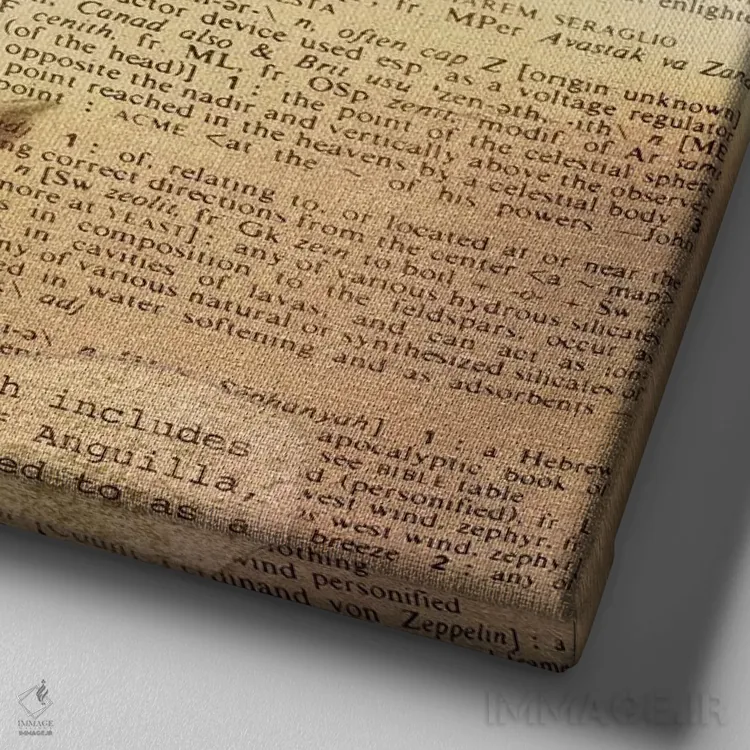 HAREM SERAGLIO
enlight
ESTA
-ər-\ n, often cap Z [origin unknown]
fr. MPer Avastāk va Zand
actor device used esp. as a voltage regulator
Canad also & Brit usu 'zen-əth, -ith\ n [ME
cenith, fr. ML, fr. OSp zenit, modif. of Ar samt
(of the head)] 1 : the point of the celestial sphere
opposite the nadir and vertically above the observer
point reached in the heavens by a celestial body 3
point : ACME <at the ~ of his powers —John
adj 1 : of, relating to, or located at or near the
ng correct directions from the center <a ~ map>
n [Sw zeolit, fr. Gk zein to boil + -o- + Sw
more at YEAST] : any of various hydrous silicates
s in composition to the feldspars, occur as
in cavities of lavas, and can act as ion
ny of various natural or synthesized silicates of
ed in water softening and as adsorbents
\ adj
Sĕphanyāh] 1 : a Hebrew
apocalyptic book of
see BIBLE table
d (personified), fr. L
west wind, zephyr, fr
s west wind, zephyr]
breeze 2 : any of
h includes
Anguilla,
ed to as a
nothing
wind personified
[Count Ferdinand von Zeppelin] : a
IMMAGE
IMMAGE.IR
IMMAGE.IR